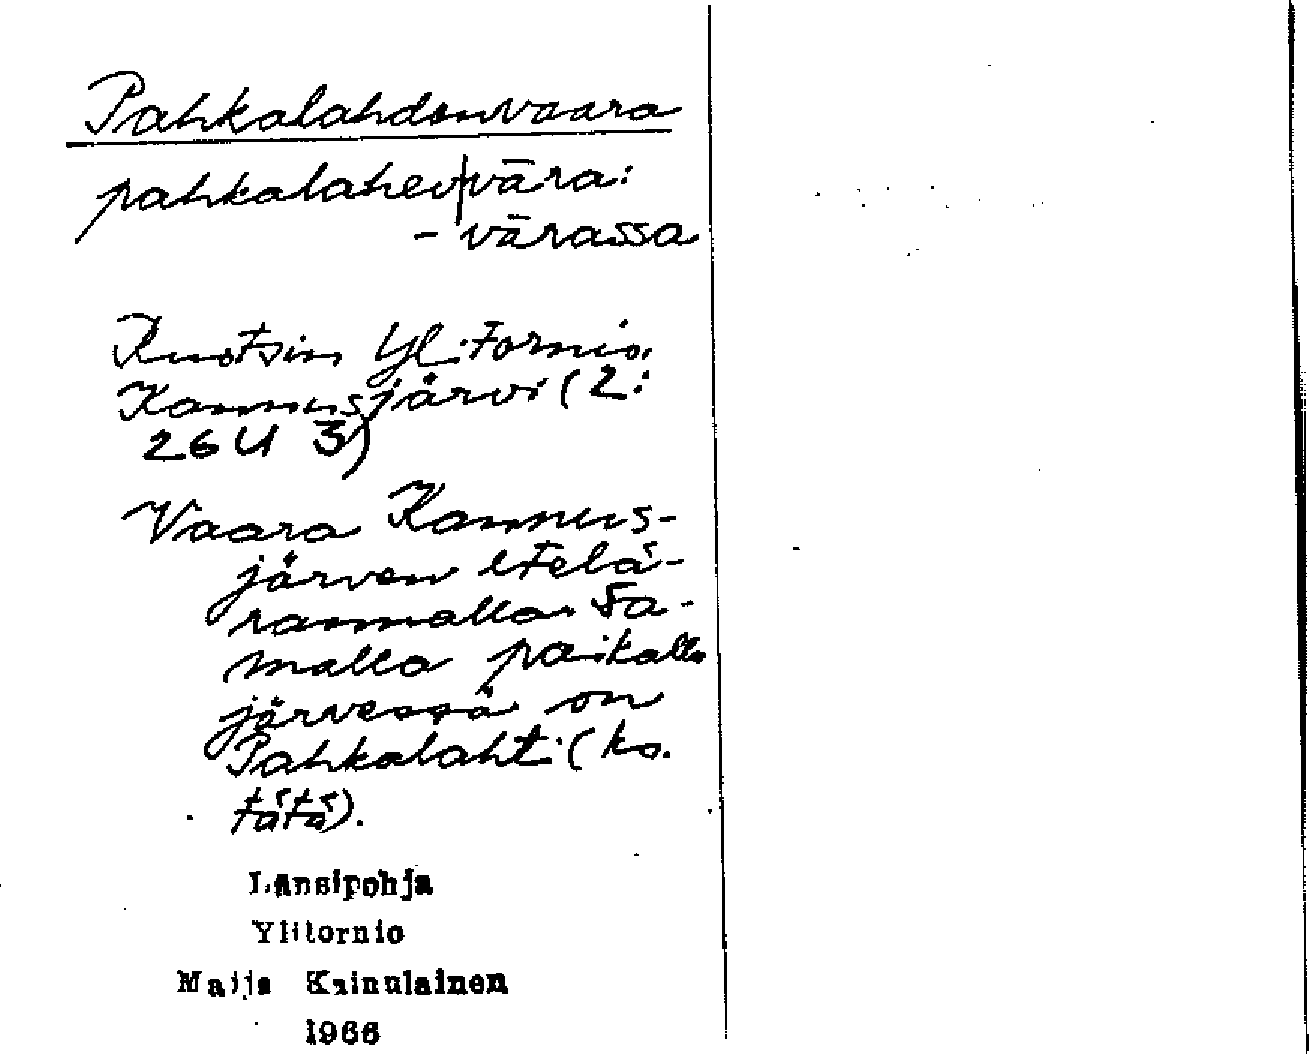 Pahkalahdenvaara
pahkalahev|vāra:
- vārassa
Ruotsin Ylitornio,
Kannusjärvi (2:
26 U 3)
Vaara Kannus-
järven etelä-
rannalla. Sa-
malla paikalla
järvessä on
Pahkalahti (ks.
tätä).
Länsipohja
Ylitornio
Maija Kainulainen
1966